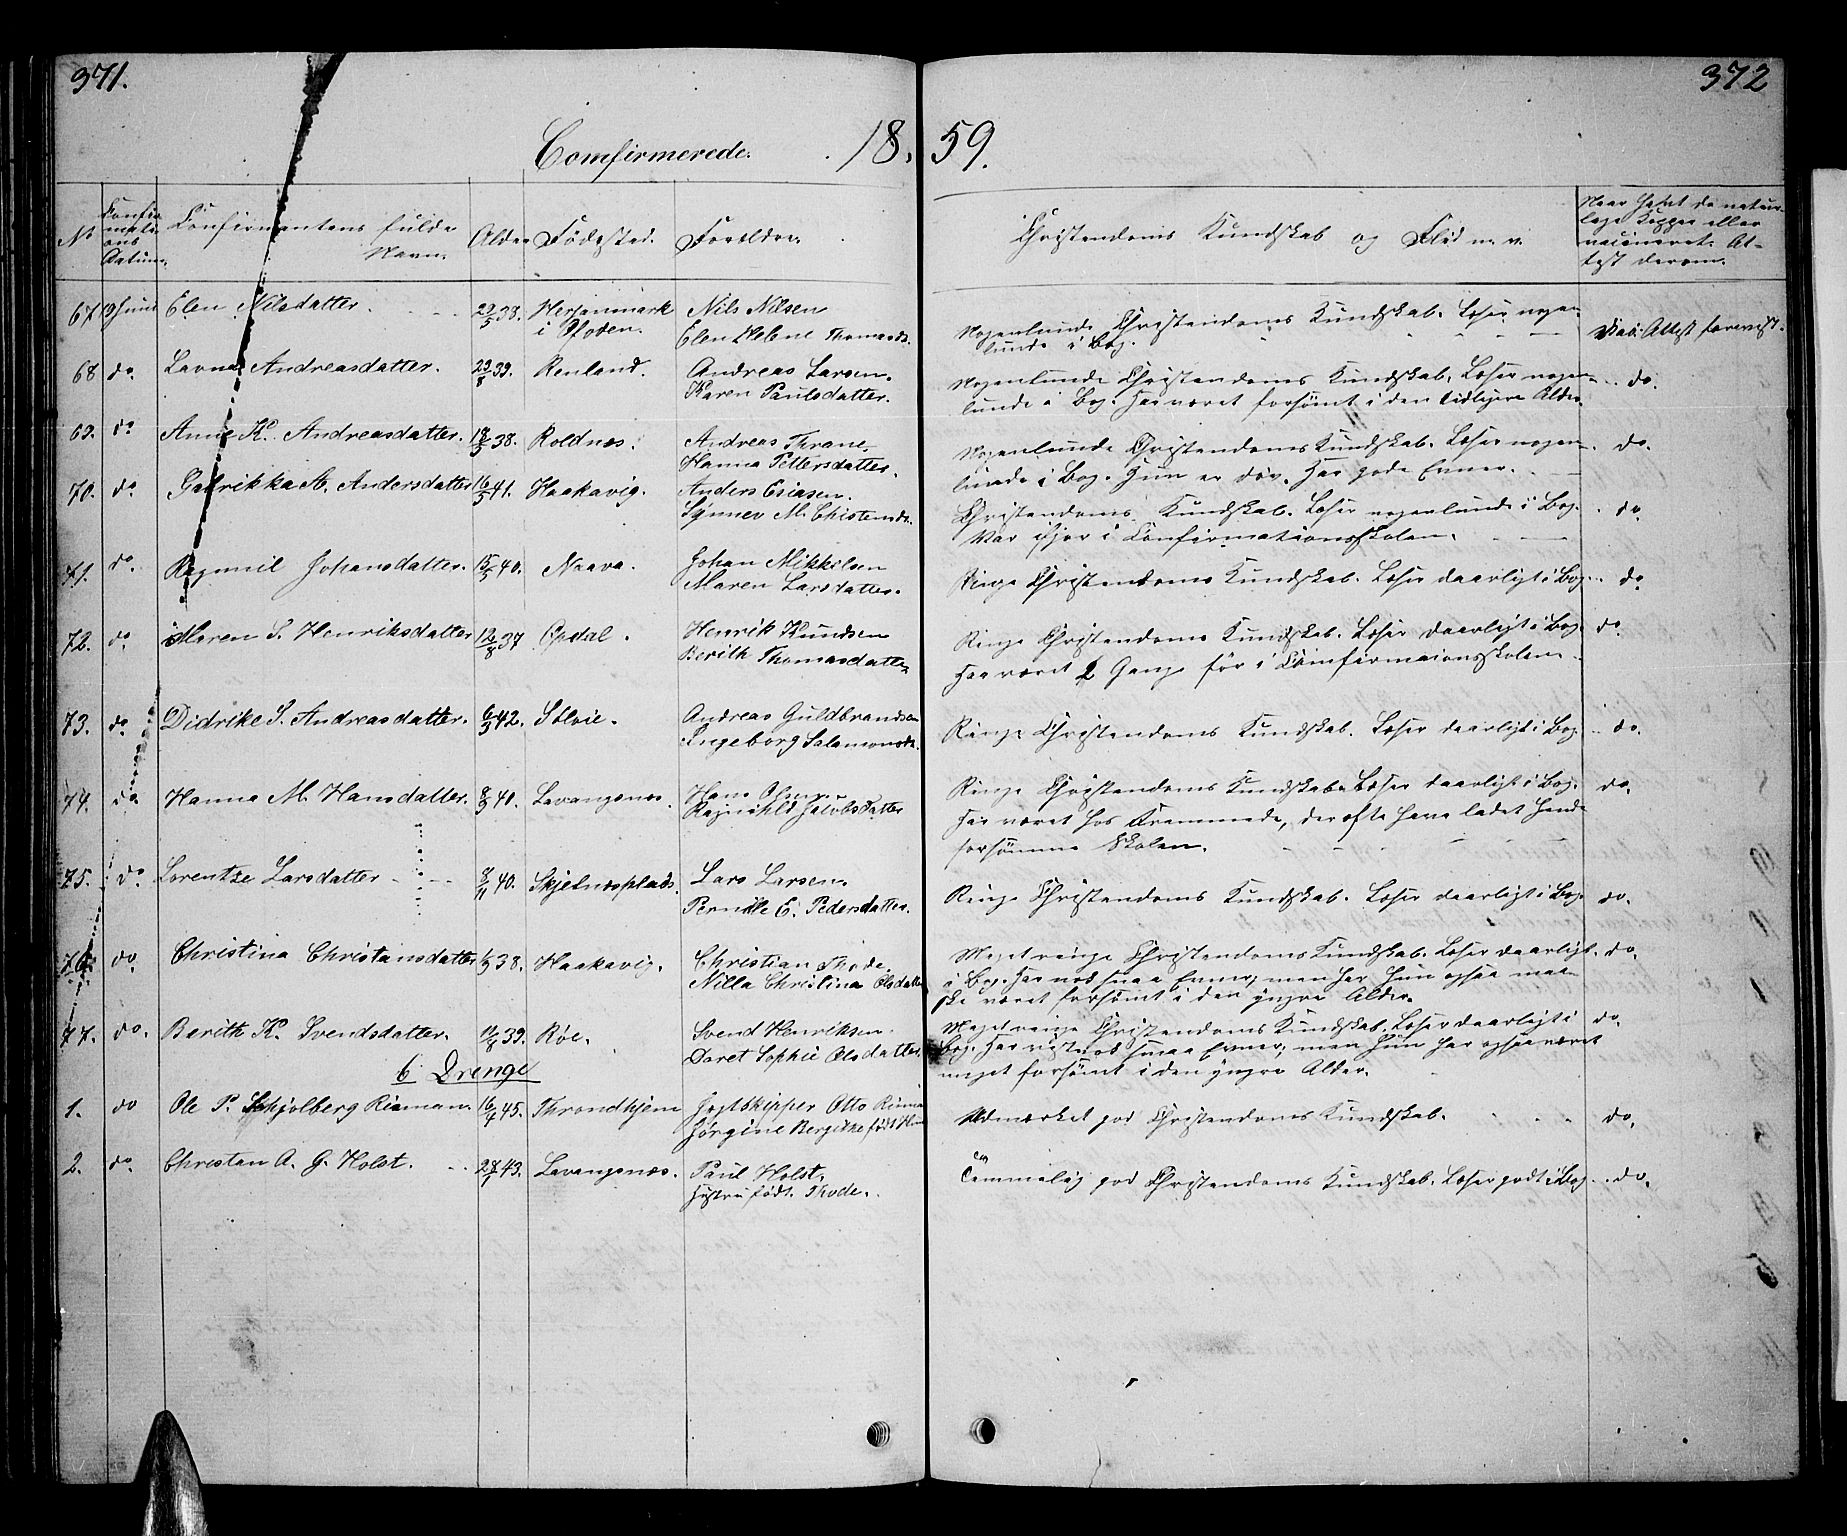 371.
372
Comfirmerede. 18 59.
No
Confir-
mati-
ons
Datum.
Confirmantens fulde
Navn.
Alder
Födested.
Forældre.
Christendoms Kundskab og Flid m. v.
Naar havt de natur-
lige Kopper eller
vaccineret. At-
test derom.
67 19 Juni Elen Nilsdatter. 29/5 38. Herjanmark Nils Nilsen
i Ofoden. Elen Helene Thomasd.
Nogenlunde Christendoms Kundskab. Læser nogen-
lunde i Bog. Vac: Attest forevist.
68 do. Lavna Andreasdatter. 23/8 39. Renland. Andreas Larsen.
Karen Paulsdatter.
Nogenlunde Christendoms Kundskab. Læser nogen- do.
lunde i Bog. Har været forsömt i den tidligere Alder.
69. do Anne K. Andreasdatter. 18/3 38. Roldnes. Andreas Thrane,
Hanna Pettersdatter.
Nogenlunde Christendoms Kundskab. Læser nogen- do.
lunde i Bog. Hun er döv. Har gode Evner.
70. do Gabrikka A. Andersdatter 16/3 41. Haakavig. Anders Esiasen.
Synnev M. Chistensd.
Christendoms Kundskab. Læser nogenlunde i Bog. do
Var ifjor i Confirmationsskolen.
71. do. Ragnnil Johansdatter. 15/5 40. Naava. Johan Mikkelsen
Maren Larsdatter.
Ringe Christendoms Kundskab. Læser daarligt i Bog. do
72. do. Maren S. Henriksdatter 12/8 37 Opdal. Henrik Knudsen
Berith Thomasdatter
Ringe Christendoms Kundskab. Læser daarligt i Bog. do.
Har været 2 Gange för i Comfirmaionsskolen.
73. do. Didrike S. Andreasdatter. 6/3 42. Solvie. Andreas Guldbrandsen
Ingeborg Salamonsd.
Ringe Christendoms Kundskab. Læser daarligt i Bog. do.
74. do. Hanna M. Hansdatter. 8/3 40. Lavangsnes. Hans Olsen
Ragnahld Jacobsdatter
Ringe Christendoms Kundskab. Læser daarligt i Bog. do.
Har været hos Fremmede, der ofte have ladet hende
forsömme Skolen.
75. do Lorentze Larsdatter 8/11 40. Skjelnesplads. Lars Larsen.
Pernille E. Pedersdatter.
Ringe Christendoms Kundskab. Læser daarligt i Bog. do.
76. do Christina Christansdatter 38. Haakavig. Christian Thode.
Nilla Christina Olsdatter
Meget ringe Christendoms Kundskab. Læser daarligt do.
i Bog. Har nok smaa Evner, men har hun ogsaa maa-
ske været forsömt i den yngre Alder.
77. do. Berith K. Svendsdatter. 12/8 39. Röe. Svend Henriksen.
Doret Sophie Olsdatter.
Meget ringe Christendoms Kundskab. Læser daarligt i do.
Bog. Har vistnok smaa Evner, men hun har ogsaa været
meget forsömt i den yngre Alder.
6 Drenge
1. do Ole P. Schjolberg Rieman. 16/7 45. Throndhjem Jagtskipper Otto
Jørgine Bergithe født
Udmærket god Christendoms Kundskab. do.
2. do. Christan A. G. Holst. 28/7 43. Lavangsnes. Paul Holst,
Hustru født. Thode.
Temmelig god Christendoms Kundskab. Læser godt i Bog. do.